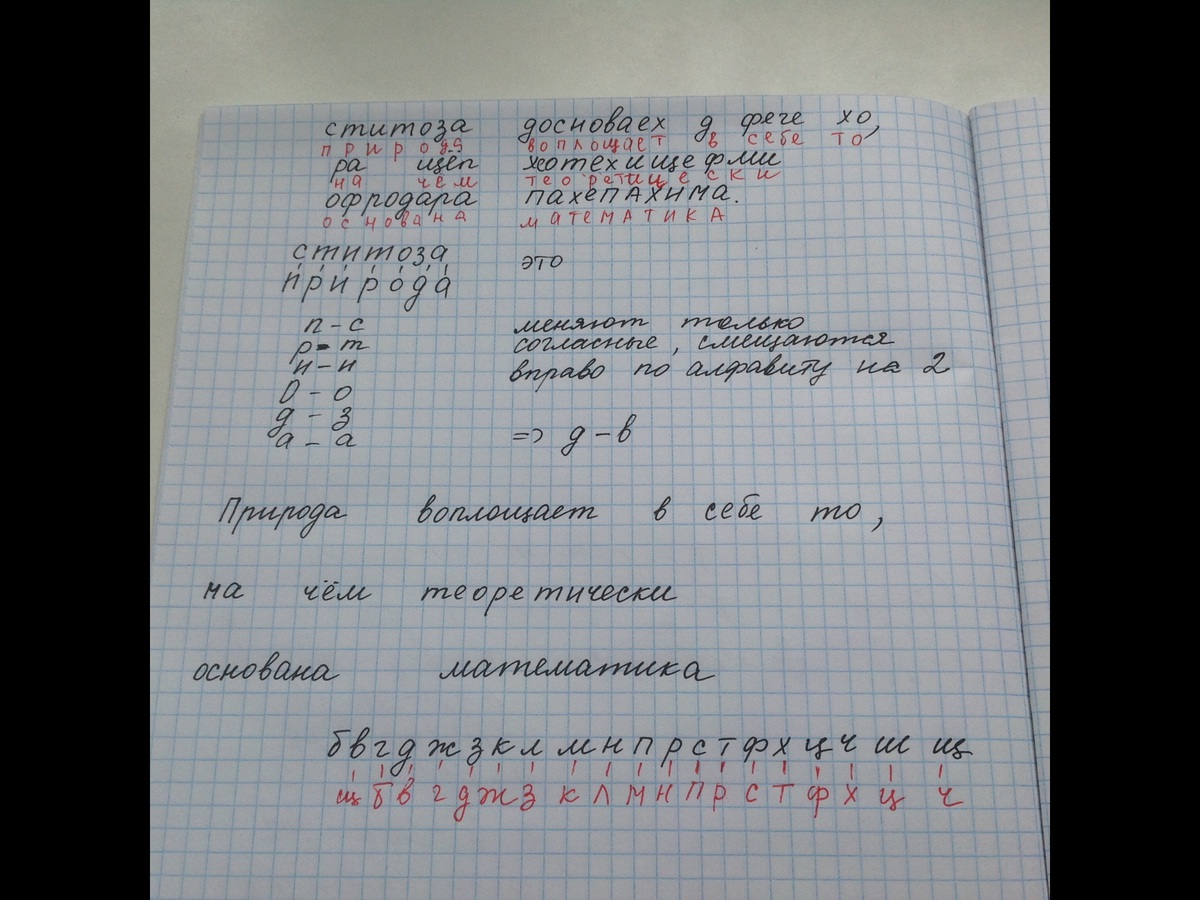 ститоза досноваех д фече хо,
природа воплощает в себе то
ра щёп хотехищефми
на чем теоретически
офродара пахепахима.
основана математика
ститоза это
природа
п-с меняют только
р-т согласные, смещаются
и-и вправо по алфавиту на 2
о-о
д-з
а-а => д-в
Природа воплощает в себе то,
на чём теоретически
основана математика
бвгджзклмнпрстфхцчшщ
щбвгджзклмнпрстфхцч